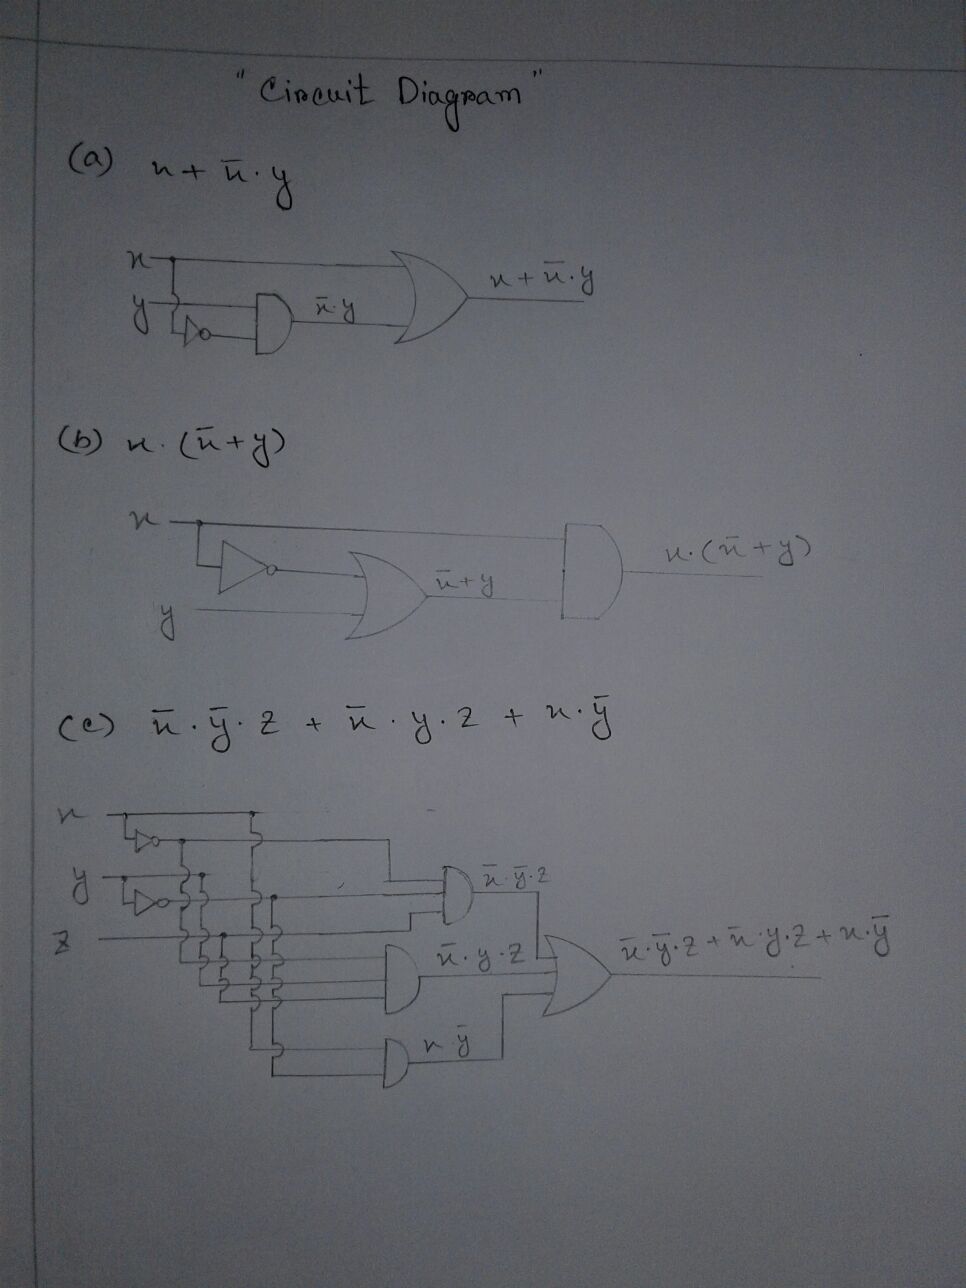 "Circuit Diagram"
(a) x + x̄ · y
x
y
x̄·y
x + x̄·y
(b) x · (x̄ + y)
x
y
x̄ + y
x·(x̄ + y)
(c) x̄ · ȳ · z + x̄ · y · z + x · ȳ
x
y
z
x̄·ȳ·z
x̄·y·z
x·ȳ
x̄·ȳ·z + x̄·y·z + x·ȳ